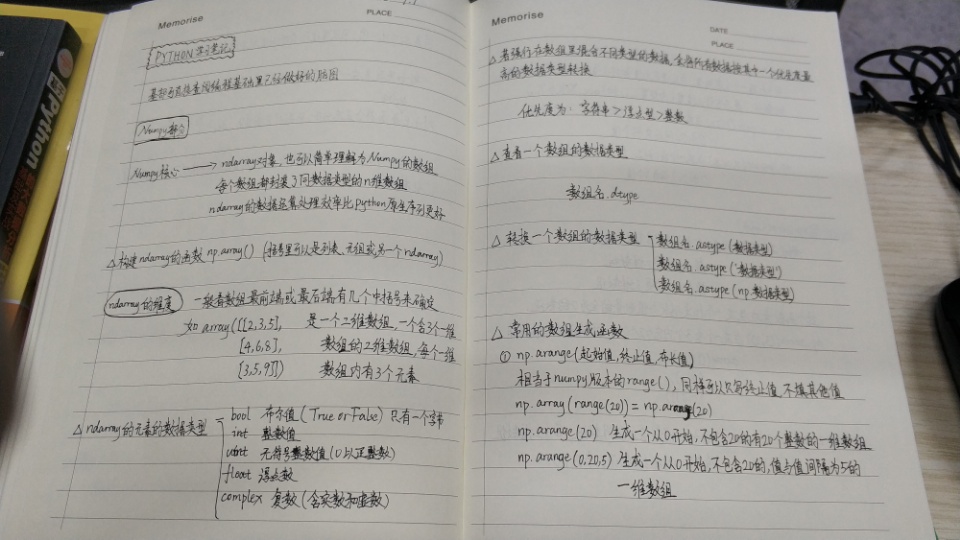 Memorise
PLACE
PYTHON学习笔记
基部
编程基础里已经做好的脑图
Numpy部分
Numpy核心 → ndarray对象,也可以简单理解为Numpy的数组
每个数组都封装了同数据类型的n维数组
ndarray的数据运算处理效率比python原生序列更好
△ 构建ndarray的函数 np.array() (括号里可以是列表、元组或另一个ndarray)
ndarray的维度 一般看数组最前端或最后端有几个中括号来确定
如 array([[2,3,5], 是一个二维数组,一个含3个一维
[4,6,8], 数组的2维数组,每个一维
[3,5,9]]) 数组内有3个元素
△ ndarray的元素的数据类型
bool 布尔值(True or False) 只有一个字节
int 整数值
uint 无符号整数值(0以正整数)
float 浮点数
complex 复数(含实数和虚数)
Python
Memorise
DATE
PLACE
△ 若强行在数组里混合不同类型的数据,会将所有数据按其中一个优先度最
高的数据类型转换
优先度为: 字符串 > 浮点型 > 整数
△ 查看一个数组的数据类型
数组名.dtype
△ 转换一个数组的数据类型
数组名.astype(数据类型)
数组名.astype('数据类型')
数组名.astype(np.数据类型)
△ 常用的数组生成函数
① np.arange(起始值,终止值,步长值)
相当于numpy版本的range(),同样可以只写终止值,不填其他值
np.array(range(20)) = np.arange(20)
np.arange(20) 生成一个从0开始,不包含20的有20个整数的一维数组
np.arange(0,20,5) 生成一个从0开始,不包含20的,值与值间隔为5的
一维数组